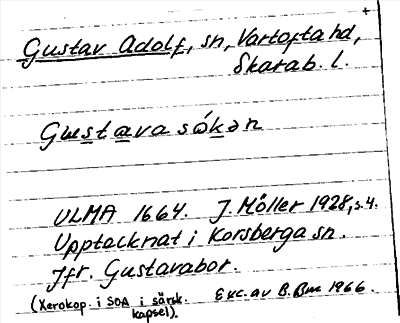 +
Gustav Adolf, sn, Vartofta hd,
Skarab. l.
Gustava sókən
ULMA 1664. J. Möller 1928, s. 4.
Upptecknat i Korsberga sn.
Jfr. Gustavabor.
(Xerokop. i SOA i särsk. kapsel).
Exc. av B. Bm 1966.